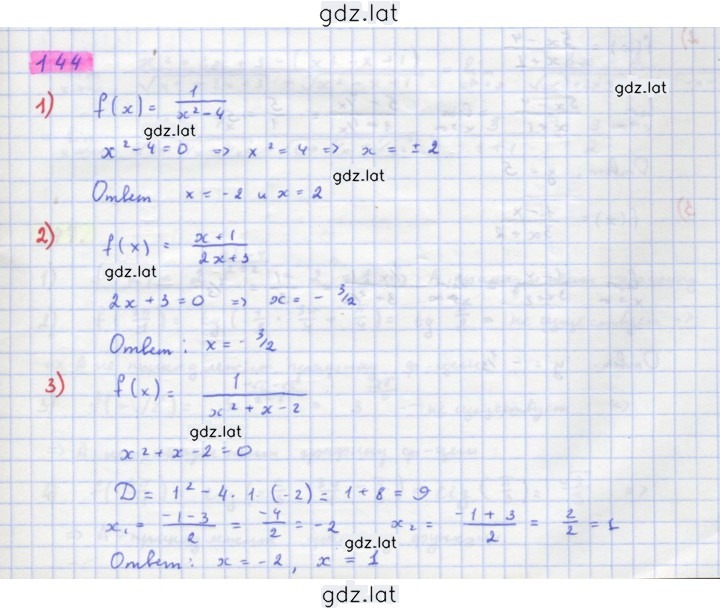 gdz.lat
144
1) f(x) = 1/(x² - 4)
gdz.lat
gdz.lat
x² - 4 = 0 => x² = 4 => x = ± 2
gdz.lat
Ответ x = -2 и x = 2
2) f(x) = (x + 1)/(2x + 3)
gdz.lat
2x + 3 = 0 => x = - 3/2
Ответ: x = - 3/2
3) f(x) = 1/(x² + x - 2)
gdz.lat
x² + x - 2 = 0
D = 1² - 4 · 1 · (-2) = 1 + 8 = 9
x₁ = (-1-3)/2 = -4/2 = -2 x₂ = (-1+3)/2 = 2/2 = 1
gdz.lat
Ответ: x = -2, x = 1
gdz.lat